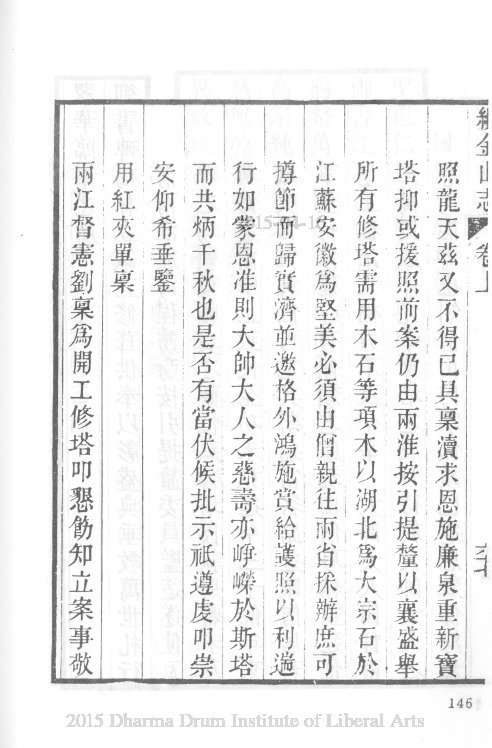 續金山志
卷上
照龍天茲又不得已具稟瀆求恩施廉泉重新寶
塔抑或援照前案仍由兩淮按引提釐以襄盛舉
所有修塔需用木石等項木以湖北爲大宗石於
江蘇安徽爲堅美必須由僧親往兩省採辦庶可
撙節而歸實濟並邀格外鴻施賞給護照以利遄
行如蒙恩准則大帥大人之慈壽亦崢嶸於斯塔
而共炳千秋也是否有當伏候批示祇遵虔叩崇
安仰希垂鑒
用紅夾單稟
兩江督憲劉稟爲開工修塔叩懇飭知立案事敬
146
2015 Dharma Drum Institute of Liberal Arts